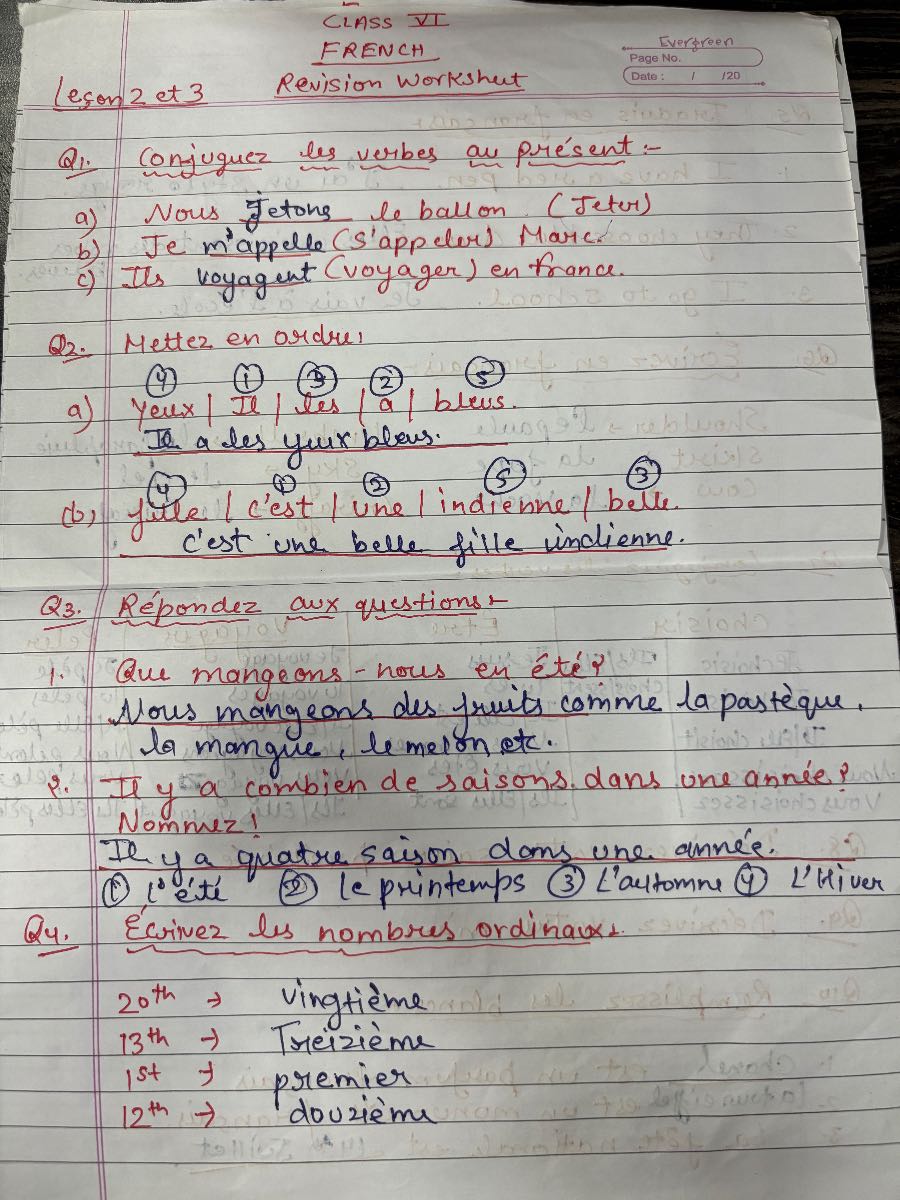 CLASS VI
FRENCH
Evergreen
Page No.
Date : / /20
Leçon 2 et 3 Revision Worksheet
Q1. Conjuguez les verbes au présent :-
a) Nous Jetons le ballon. (Jeter)
b) Je m'appelle (S'appeler) Marc.
c) Ils voyagent (voyager) en france.
Q2. Mettez en ordre:
4 1 3 2 5
a) Yeux | Il | les | a | bleus.
Il a les yeux bleus.
4 1 2 5 3
(b) fille | c'est | une | indienne | belle.
c'est une belle fille indienne.
Q3. Répondez aux questions:-
1. Que mangeons-nous en été?
Nous mangeons des fruits comme la pastèque,
la mangue, le melon etc.
2. Il y a combien de saisons dans une année?
Nommez!
Il y a quatre saison dans une année.
① l'été ② le printemps ③ L'automne ④ L'Hiver
Q4. Écrivez les nombres ordinaux:-
20th → vingtième
13th → Treizième
1st → premier
12th → douzième